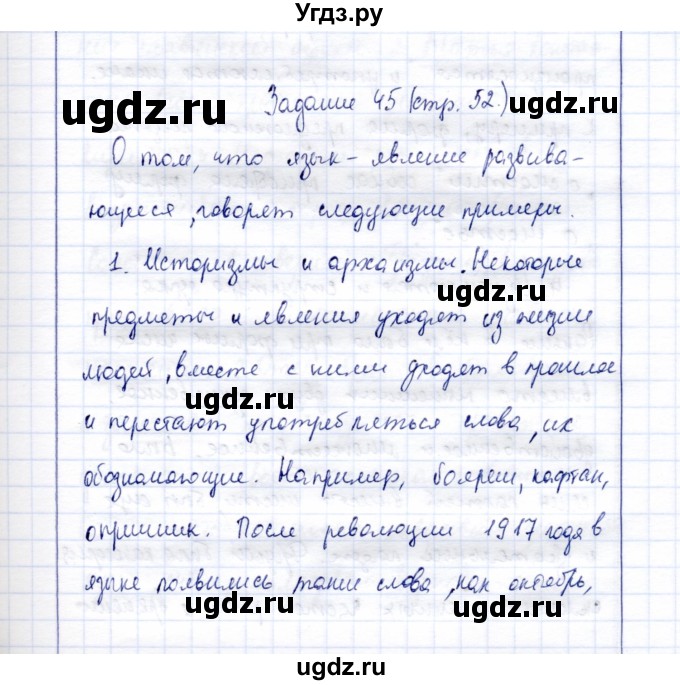 Угдз.ру
ugdz.ru ugdz.ru
Задание 45 (стр. 52.)
О том, что язык - явление развива-
ющееся, говорят следующие примеры.
1. Историзмы и архаизмы. Некоторые
ugdz.ru
предметы и явления уходят из жизни
людей, вместе с ними уходят в прошлое
ugdz.ru
и перестают употребляться слова, их
обозначающие. Например, боярин, кафтан,
ugdz.ru
опричник. После революции 1917 года в
языке появились такие слова, как октябрь,
ugdz.ru ugdz.ru
ugdz.ru